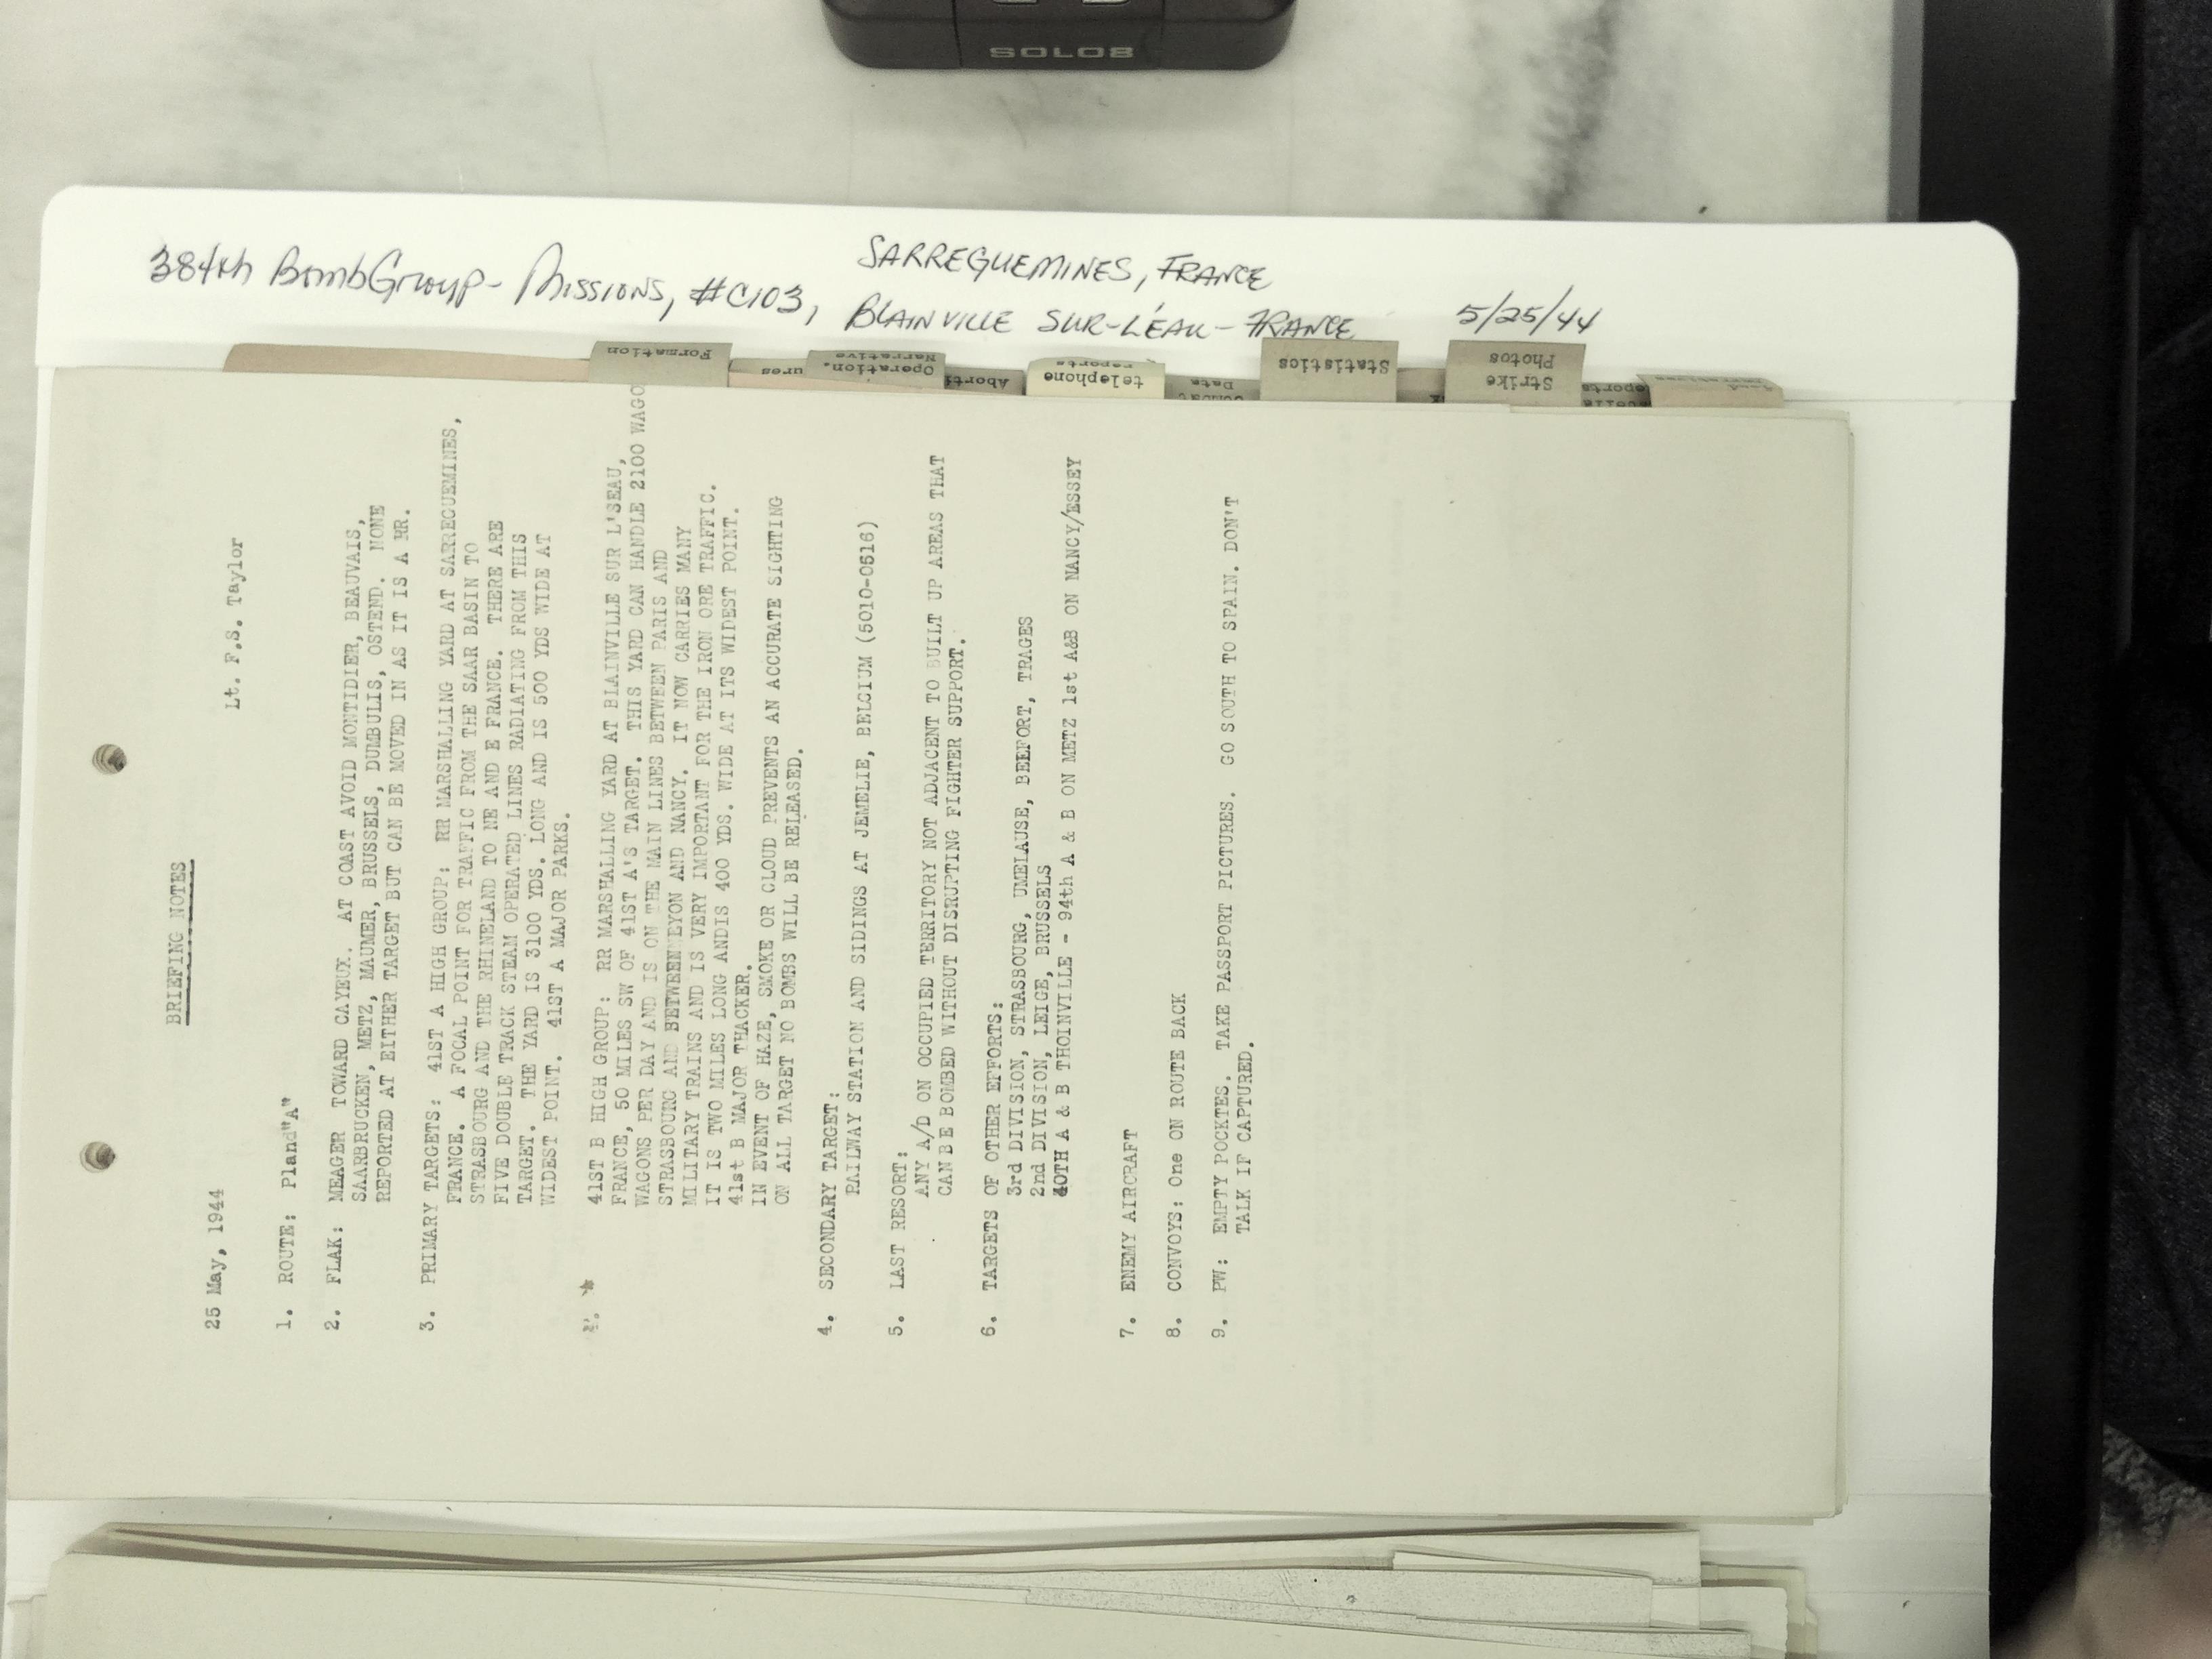 SOLO8
384th BombGroup- Missions, #C103,
SARREGUEMINES, FRANCE
BLAINVILLE SUR-L'ÉAU-FRANCE
5/25/44
Formation
ures
Operation.
Narrative
Aborti
telephone
reports
Data
Statistics
Strike
Photos
BRIEFING NOTES
25 May, 1944
Lt. F.S. Taylor
1. ROUTE: Pland"A"
2. FLAK: MEAGER TOWARD CAYEUX. AT COAST AVOID MONTIDIER, BEAUVAIS,
SAARBRUCKEN, METZ, MAUMER, BRUSSELS, DUMBULIS, OSTEND. NONE
REPORTED AT EITHER TARGET BUT CAN BE MOVED IN AS IT IS A RR.
3. PRIMARY TARGETS: 41ST A HIGH GROUP: RR MARSHALLING YARD AT SARREGUEMINES,
FRANCE. A FOCAL POINT FOR TRAFFIC FROM THE SAAR BASIN TO
STRASBOURG AND THE RHINELAND TO NE AND E FRANCE. THERE ARE
FIVE DOUBLE TRACK STEAM OPERATED LINES RADIATING FROM THIS
TARGET. THE YARD IS 3100 YDS. LONG AND IS 500 YDS WIDE AT
WIDEST POINT. 41ST A MAJOR PARKS.
41ST B HIGH GROUP: RR MARSHALLING YARD AT BLAINVILLE SUR L'SEAU,
FRANCE, 50 MILES SW OF 41ST A'S TARGET. THIS YARD CAN HANDLE 2100 WAGO
WAGONS PER DAY AND IS ON THE MAIN LINES BETWEEN PARIS AND
STRASBOURG AND BETWEEN EYON AND NANCY. IT NOW CARRIES MANY
MILITARY TRAINS AND IS VERY IMPORTANT FOR THE IRON ORE TRAFFIC.
IT IS TWO MILES LONG ANDIS 400 YDS. WIDE AT ITS WIDEST POINT.
41st B MAJOR THACKER.
IN EVENT OF HAZE, SMOKE OR CLOUD PREVENTS AN ACCURATE SIGHTING
ON ALL TARGET NO BOMBS WILL BE RELEASED.
4. SECONDARY TARGET:
RAILWAY STATION AND SIDINGS AT JEMELIE, BELGIUM (5010-0516)
5. LAST RESORT:
ANY A/D ON OCCUPIED TERRITORY NOT ADJACENT TO BUILT UP AREAS THAT
CANBE BOMBED WITHOUT DISRUPTING FIGHTER SUPPORT.
6. TARGETS OF OTHER EFFORTS:
3rd DIVISION, STRASBOURG, UMELAUSE, BEEFORT, TRAGES
2nd DIVISION, LEIGE, BRUSSELS
40TH A & B THOINVILLE - 94th A & B ON METZ 1st A&B ON NANCY/ESSEY
7. ENEMY AIRCRAFT
8. CONVOYS: One ON ROUTE BACK
9. PW: EMPTY POCKTES. TAKE PASSPORT PICTURES. GO SOUTH TO SPAIN. DON'T
TALK IF CAPTURED.